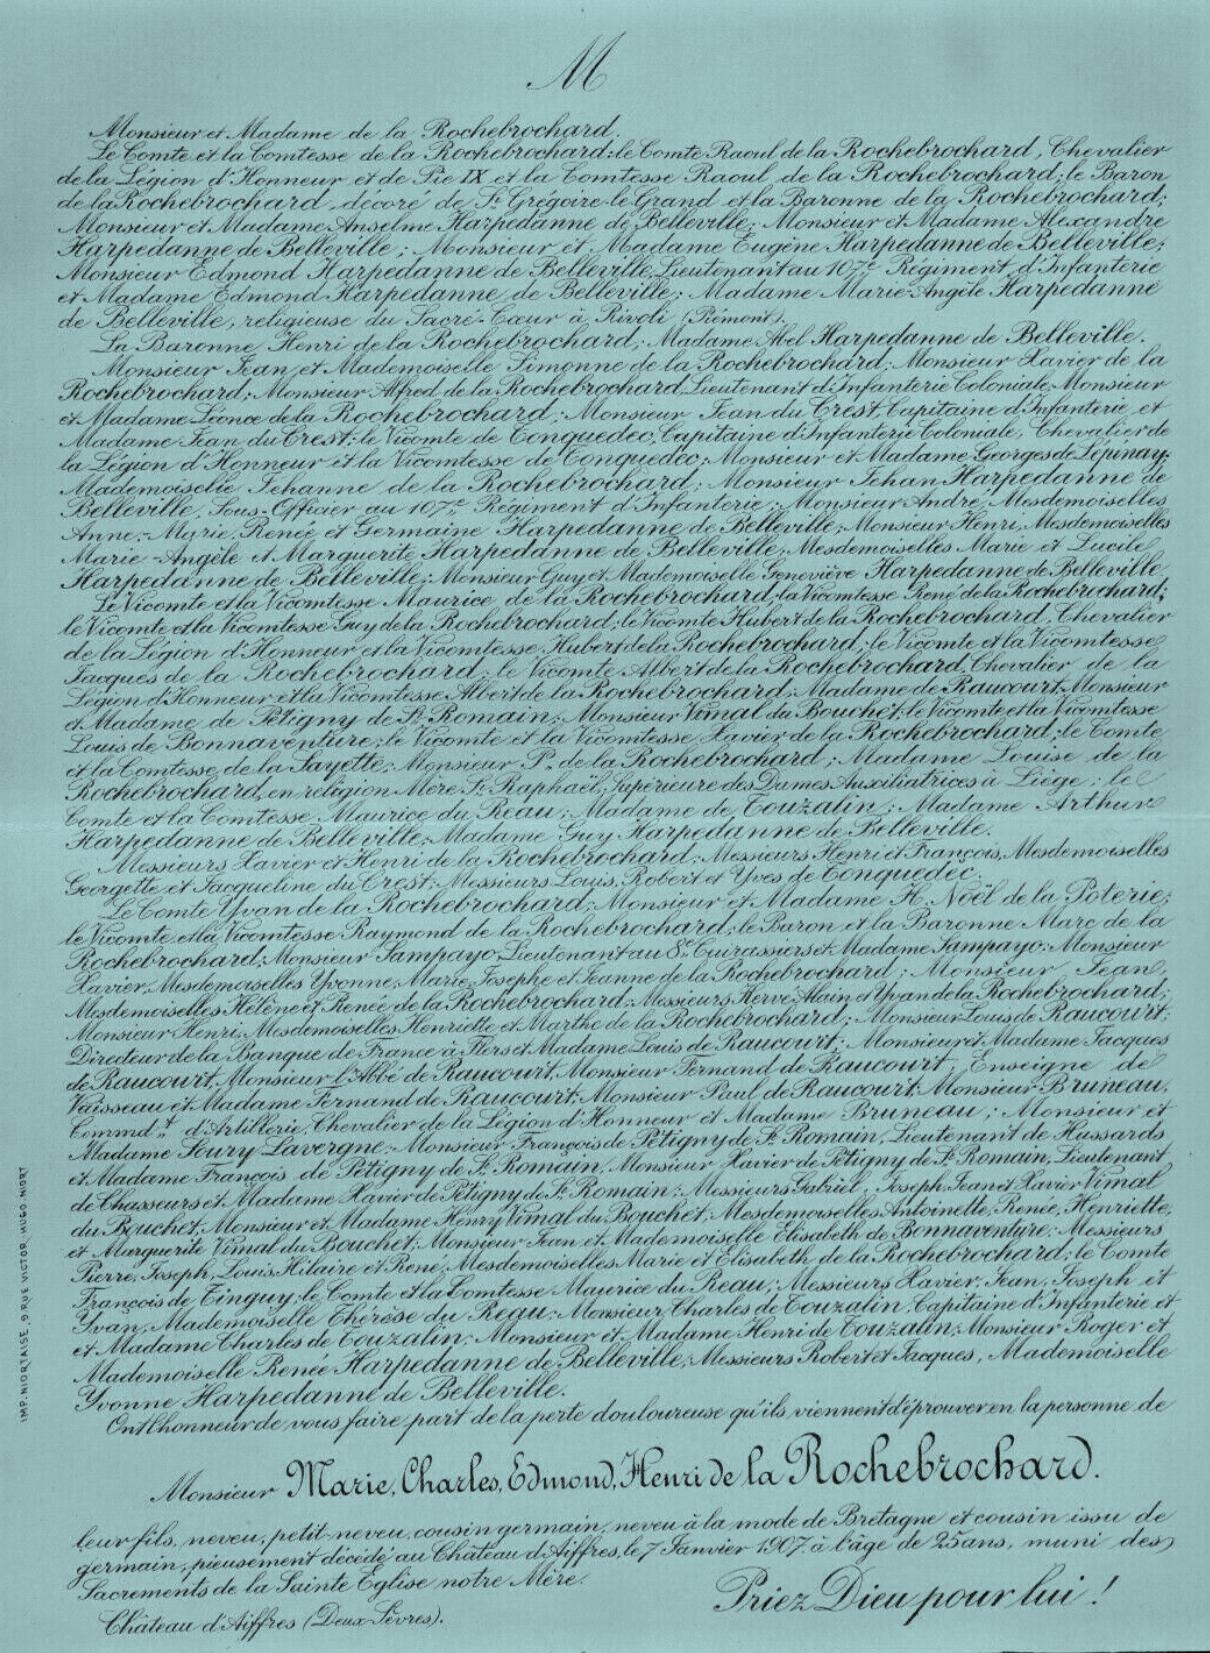 M
Monsieur et Madame de la Rochebrochard.
Le Comte et la Comtesse de la Rochebrochard; le Comte Raoul de la Rochebrochard, Chevalier
de la Légion d'Honneur et de Pie IX et la Comtesse Raoul de la Rochebrochard; le Baron
de la Rochebrochard, décoré de St Grégoire-le-Grand et la Baronne de la Rochebrochard;
Monsieur et Madame Anselme Harpedanne de Belleville; Monsieur et Madame Alexandre
Harpedanne de Belleville; Monsieur et Madame Eugène Harpedanne de Belleville;
Monsieur Edmond Harpedanne de Belleville, Lieutenant au 107e Régiment d'Infanterie
et Madame Edmond Harpedanne de Belleville; Madame Marie-Angèle Harpedanne
de Belleville, religieuse du Sacré-Cœur à Rivoli (Piémont).
La Baronne Henri de la Rochebrochard; Madame Abel Harpedanne de Belleville.
Monsieur Jean et Mademoiselle Simonne de la Rochebrochard; Monsieur Xavier de la
Rochebrochard; Monsieur Alfred de la Rochebrochard, Lieutenant d'Infanterie Coloniale; Monsieur
et Madame Léonce de la Rochebrochard; Monsieur Jean du Crest, Capitaine d'Infanterie et
Madame Jean du Crest; le Vicomte de Tonquédec, Capitaine d'Infanterie Coloniale, Chevalier de
la Légion d'Honneur et la Vicomtesse de Tonquédec; Monsieur et Madame Georges de Lépinay;
Mademoiselle Jehanne de la Rochebrochard; Monsieur Jehan Harpedanne de
Belleville, Sous-Officier au 107e Régiment d'Infanterie; Monsieur André, Mesdemoiselles
Anne-Marie, Renée et Germaine Harpedanne de Belleville; Monsieur Henri, Mesdemoiselles
Marie-Angèle et Marguerite Harpedanne de Belleville; Mesdemoiselles Marie et Lucile
Harpedanne de Belleville; Monsieur Guy et Mademoiselle Geneviève Harpedanne de Belleville.
Le Vicomte et la Vicomtesse Maurice de la Rochebrochard; la Vicomtesse René de la Rochebrochard;
le Vicomte et la Vicomtesse Guy de la Rochebrochard; le Vicomte Hubert de la Rochebrochard, Chevalier
de la Légion d'Honneur et la Vicomtesse Hubert de la Rochebrochard; le Vicomte et la Vicomtesse
Jacques de la Rochebrochard; le Vicomte Albert de la Rochebrochard, Chevalier de la
Légion d'Honneur et la Vicomtesse Albert de la Rochebrochard; Madame de Raucourt; Monsieur
et Madame de Pétigny de St Romain; Monsieur Vimal du Bouchet; le Vicomte et la Vicomtesse
Louis de Bonnaventure; le Vicomte et la Vicomtesse Xavier de la Rochebrochard; le Comte
et la Comtesse de la Sayette; Monsieur P. de la Rochebrochard; Madame Louise de la
Rochebrochard, en religion Mère St Raphaël, Supérieure des Dames Auxiliatrices à Liège; le
Comte et la Comtesse Maurice du Reau; Madame de Touzalin; Madame Arthur
Harpedanne de Belleville; Madame Guy Harpedanne de Belleville.
Messieurs Xavier et Henri de la Rochebrochard; Messieurs Henri et François, Mesdemoiselles
Georgette et Jacqueline du Crest; Messieurs Louis, Robert et Yves de Tonquédec.
Le Comte Yvan de la Rochebrochard; Monsieur et Madame H. Noël de la Poterie;
le Vicomte et la Vicomtesse Raymond de la Rochebrochard; le Baron et la Baronne Marc de la
Rochebrochard; Monsieur Sampayo, Lieutenant au 8e Cuirassiers et Madame Sampayo; Monsieur
Xavier, Mesdemoiselles Yvonne, Marie, Josèphe et Jeanne de la Rochebrochard; Monsieur Jean,
Mesdemoiselles Hélène et Renée de la Rochebrochard; Messieurs Hervé, Alain et Yvan de la Rochebrochard;
Monsieur Henri, Mesdemoiselles Henriette et Marthe de la Rochebrochard; Monsieur Louis de Raucourt,
Directeur de la Banque de France à Flers et Madame Louis de Raucourt; Monsieur et Madame Jacques
de Raucourt, Monsieur l'Abbé de Raucourt, Monsieur Fernand de Raucourt, Enseigne de
Vaisseau et Madame Fernand de Raucourt; Monsieur Paul de Raucourt; Monsieur Bruneau,
Commdt d'Artillerie, Chevalier de la Légion d'Honneur et Madame Bruneau; Monsieur et
Madame Soury Lavergne; Monsieur François de Pétigny de St Romain, Lieutenant de Hussards
et Madame François de Pétigny de St Romain, Monsieur Xavier de Pétigny de St Romain, Lieutenant
de Chasseurs et Madame Xavier de Pétigny de St Romain; Messieurs Gabriel, Joseph, Jean et Xavier Vimal
du Bouchet; Monsieur et Madame Henry Vimal du Bouchet; Mesdemoiselles Antoinette, Renée, Henriette,
et Marguerite Vimal du Bouchet; Monsieur Jean et Mademoiselle Elisabeth de Bonnaventure; Messieurs
Pierre, Joseph, Louis, Hilaire et René, Mesdemoiselles Marie et Elisabeth de la Rochebrochard; le Comte
François de Tinguy; le Comte et la Comtesse Maurice du Reau; Messieurs Xavier, Jean, Joseph et
Yvan, Mademoiselle Thérèse du Reau; Monsieur Charles de Touzalin, Capitaine d'Infanterie et
et Madame Charles de Touzalin; Monsieur et Madame Henri de Touzalin; Monsieur Roger et
Mademoiselle Renée Harpedanne de Belleville; Messieurs Robert et Jacques, Mademoiselle
Yvonne Harpedanne de Belleville.
Ont l'honneur de vous faire part de la perte douloureuse qu'ils viennent d'éprouver en la personne de
Monsieur Marie, Charles, Edmond, Henri de la Rochebrochard.
leur fils, neveu, petit-neveu, cousin germain, neveu à la mode de Bretagne et cousin issu de
germain, pieusement décédé au Château d'Aiffres, le 7 Janvier 1907 à l'âge de 25 ans, muni des
Sacrements de la Sainte Eglise notre Mère.
Priez Dieu pour lui !
Château d'Aiffres (Deux-Sèvres).
IMP. NIORTAISE, 9, RUE VICTOR HUGO, NIORT